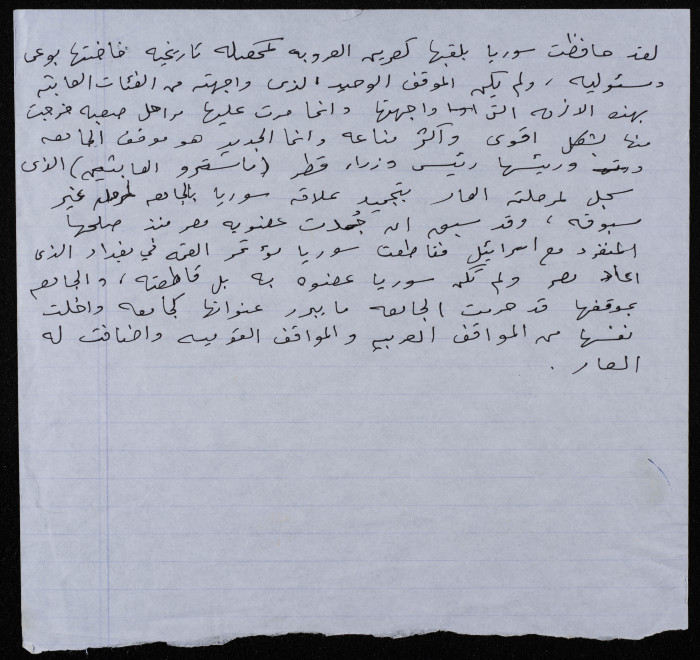 لقد حافظت سوريا بلقبها كعرين العروبه كمحصله تاريخيه خاضتها بوعى
ومسئوليه ، ولم يكن الموقف الوحيد الذى واجهته من الفئات العابثه
بهذه الازمه التى واجهتها وانما مرت عليها مراحل صعبه خرجت
منها بشكل اقوى وأكثر مناعه وانما الجديد هو موقف الجامعه
ورئيسها رئيس وزراء قطر الذى
سجل لمرحلته العار بتجميد علاقه سوريا بالجامعه لمرحله غير
مسبوقه ، وقد سبق ان جُمدت عضويه مصر منذ صلحها
المنفرد مع اسرائيل فقاطعت سوريا مؤتمر القمه في بغداد الذى
اعاد مصر ولم تكن سوريا عضوه به بل قاطعته ، والجامعه
بموقفها قد حرمت الجامعه ما يبرر عنوانها كجامعه واخلت
نفسها من المواقف العربيه والمواقف القوميه واضافت له
العار .